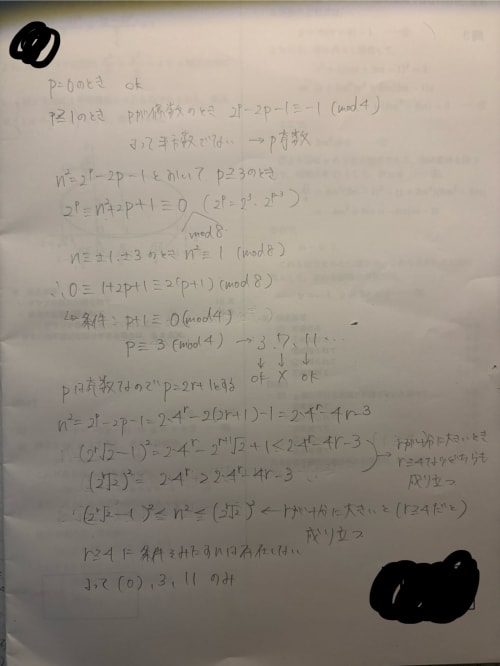 p=0のとき ok
p≧1のとき pが偶数のとき 2^p-2p-1≡-1 (mod4)
よって平方数でない → p奇数
n²=2^p-2p-1とおいて p≧3のとき
2^p=n²+2p+1≡0 (2^p=2³・2^{p-3})
mod8
n≡±1,±3のとき n²≡1 (mod8)
∴0≡1+2p+1≡2(p+1) (mod8)
条件: p+1≡0(mod4)
p≡3(mod4) → 3, 7, 11…
↓ ↓ ↓
ok X ok
pは奇数なのでp=2r+1とする
n²=2^p-2p-1=2・4^r-2(2r+1)-1=2・4^r-4r-3
(2^r√2-1)²=2・4^r-2^{r+1}√2+1<2・4^r-4r-3
(2^r√2)²=2・4^r>2・4^r-4r-3
→ rが十分に大きいとき
r≧4ならどちらも
成り立つ
∴(2^r√2-1)²≤n²≤(2^r√2)² ← rが十分に大きいと(r≧4だと)
成り立つ
r≧4に条件をみたすnは存在しない
よって(0),3,11のみ